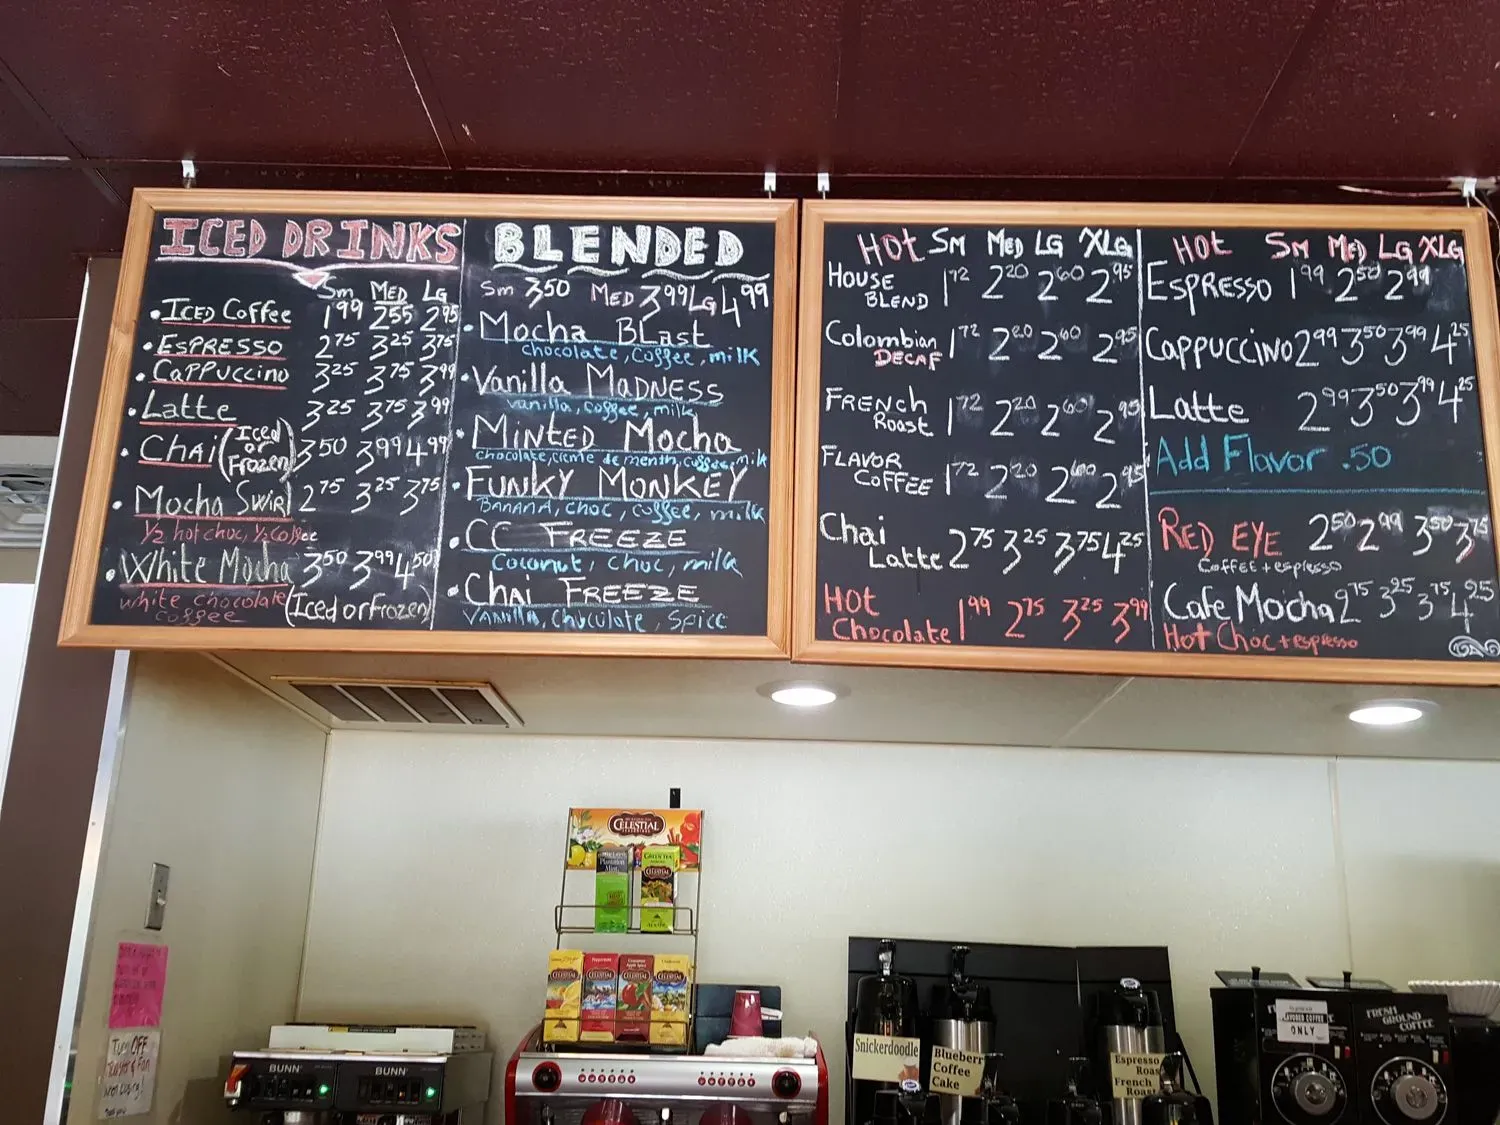 ICED DRINKS
Sm MED LG
• ICED Coffee 1.99 2.55 2.95
• ESPRESSO 2.75 3.25 3.75
• Cappuccino 3.25 3.75 3.99
• Latte 3.25 3.75 3.99
• CHAI (Iced or Frozen) 3.50 3.99 4.99
• Mocha Swirl 2.75 3.25 3.75
1/2 hot choc, 1/2 coffee
• White Mocha 3.50 3.99 4.50
white chocolate (Iced or Frozen)
coffee
BLENDED
Sm 3.50 MED 3.99 LG 4.99
• Mocha BLast
chocolate, coffee, milk
• Vanilla MADNESS
vanilla, coffee, milk
• MINTED Mocha
chocolate, creme de menth, coffee, milk
• FUNKY MONKEY
BANANA, choc, coffee, milk
• CC FREEZE
Coconut, choc, milk
• Chai FREEZE
VANilla, chocolate, spice
HOT SM MED LG XLG
HOUSE BLEND 1.72 2.20 2.60 2.95
Colombian DECAF 1.72 2.20 2.60 2.95
FRENCH Roast 1.72 2.20 2.60 2.95
FLAVOR COFFEE 1.72 2.20 2.60 2.95
Chai Latte 2.75 3.25 3.75 4.25
HOT Chocolate 1.99 2.75 3.25 3.99
HOT SM MED LG XLG
ESPRESSO 1.99 2.50 2.99
CAPPUCCINO 2.99 3.50 3.99 4.25
Latte 2.99 3.50 3.99 4.25
Add Flavor .50
RED EYE 2.50 2.99 3.50 3.75
COFFEE + espresso
Cafe Mocha 2.75 3.25 3.75 4.25
Hot Choc + espresso
CELESTIAL
GREEN TEA
BUNN
BUNN
Turn OFF
Snickerdoodle
Blueberry
Coffee
Cake
Espresso
Roast
French
Roast
FLAVORED COFFEE
ONLY
FRESH
GROUND
COFFEE